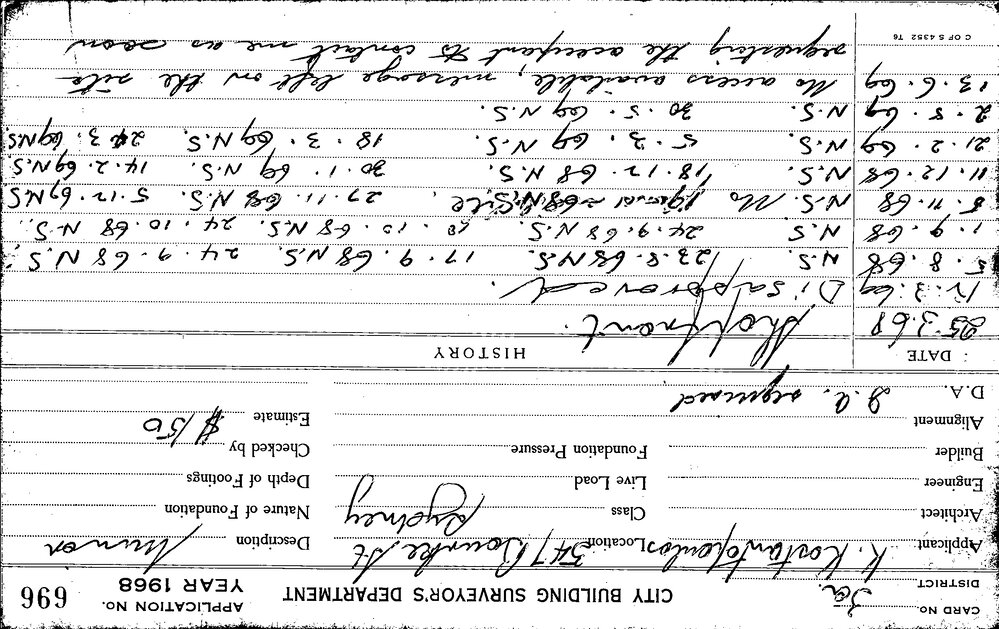 CARD NO.
APPLICATION NO. 696
CITY BUILDING SURVEYOR'S DEPARTMENT
DISTRICT 3a.
YEAR 1968
Applicant K. Kostantopoulos Location 347 Bourke St Description Minor
Architect Class Sydney Nature of Foundation
Engineer Live Load Depth of Footings
Builder Foundation Pressure Checked by
Alignment Estimate $150
D.A. I.A. required
DATE HISTORY
25.3.68 Shopfront.
12.3.69 Disapproved.
5.8.68 N.S. 23.8.68 N.S. 17.9.68 N.S. 24.9.68 N.S.
1.9.68 N.S. 24.9.68 N.S. 10.10.68 N.S. 24.10.68 N.S.
8.11.68 N.S. No 27.11.68 N.S. 5.12.69 N.S
11.12.68 N.S. 18.12.68 N.S. 30.1.69 N.S. 14.2.69 N.S
21.2.69 N.S. 5.3.69 N.S. 18.3.69 N.S. 24.3.69 N.S
2.5.69 N.S. 30.5.69 N.S.
13.6.69 No access available, message left on the site
requesting the occupant to contact me as soon
C OF S 4352 76